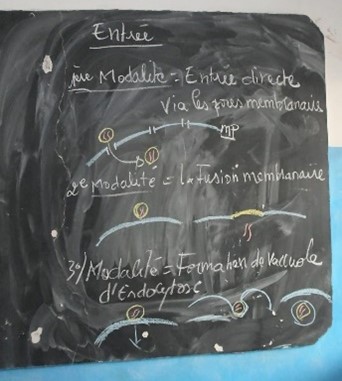 Entrée
1ère Modalité = Entrée directe
via les pores membranaires
MP
2e Modalité = la Fusion membranaire
3°/ Modalité = Formation de Vacuole
d'Endocytose